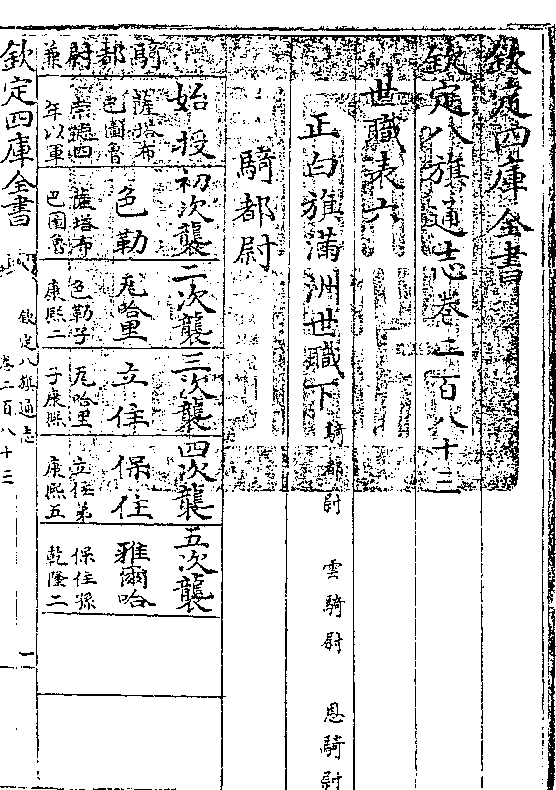 欽定四庫全書
欽定八旗通志卷二百八十三
世職表六
正白旗滿洲世職下 騎都尉 雲騎尉 恩騎尉
騎都尉
始授 初次襲 二次襲 三次襲 四次襲 五次襲
薩塔布
巴圖魯 色勒 兎哈里 立住 保住 雅爾哈
騎都尉兼
崇德四 薩塔布 色勒子 兎哈里 立住弟 保住孫
年以軍 巴圖魯 康熙二 子康熙 康熙五 乾隆二
欽定四庫全書
欽定八旗通志
卷二百八十三
一